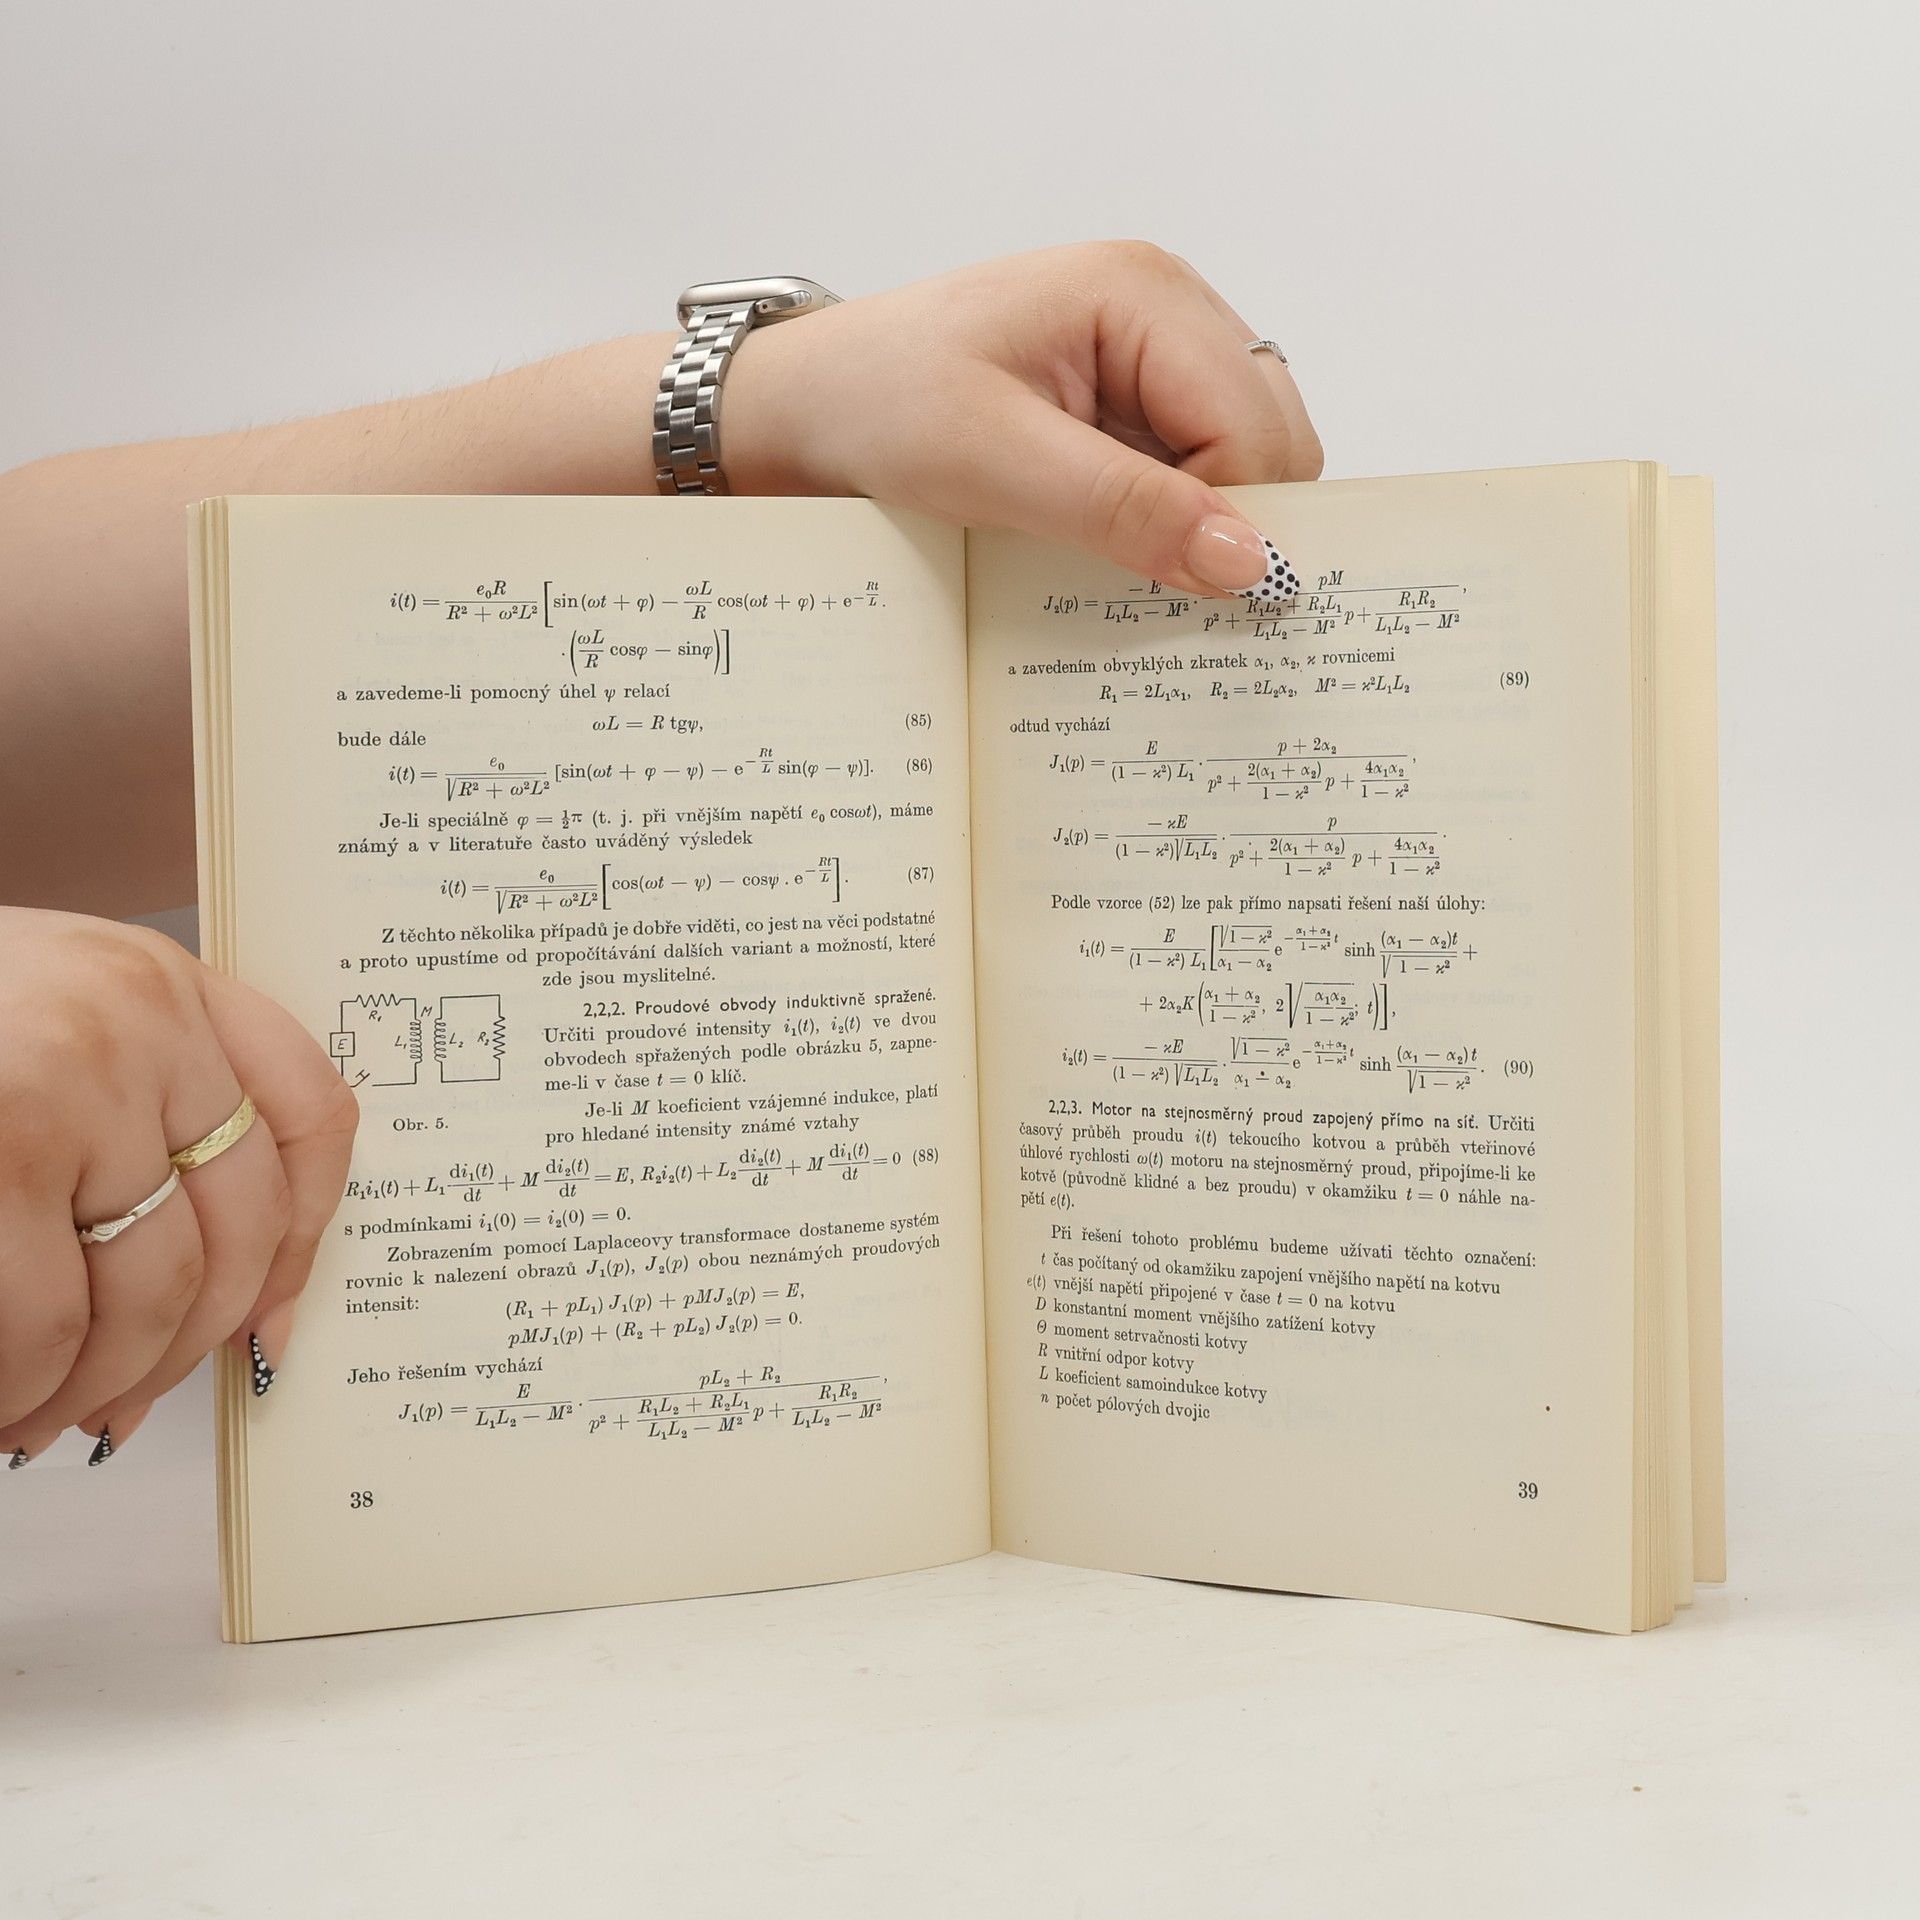 i(t) = e₀R / (R² + ω²L²) [ sin(ωt + φ) − ωL/R cos(ωt + φ) + e^(−Rt/L) .
. (ωL/R cosφ − sinφ) ]
a zavedeme-li pomocný úhel ψ relací
ωL = R tgψ, (85)
bude dále
i(t) = e₀ / √(R² + ω²L²) [sin(ωt + φ − ψ) − e^(−Rt/L) sin(φ − ψ)]. (86)
Je-li speciálně φ = ½π (t. j. při vnějším napětí e₀ cosωt), máme
známý a v literatuře často uváděný výsledek
i(t) = e₀ / √(R² + ω²L²) [ cos(ωt − ψ) − cosψ . e^(−Rt/L) ]. (87)
Z těchto několika případů je dobře viděti, co jest na věci podstatné
a proto upustíme od propočítávání dalších variant a možností, které
zde jsou myslitelné.
R₁ M
E L₁ L₂ R₂
Obr. 5.
2,2,2. Proudové obvody induktivně spražené.
Určiti proudové intensity i₁(t), i₂(t) ve dvou
obvodech spřažených podle obrázku 5, zapne-
me-li v čase t = 0 klíč.
Je-li M koeficient vzájemné indukce, platí
pro hledané intensity známé vztahy
R₁i₁(t) + L₁ di₁(t)/dt + M di₂(t)/dt = E, R₂i₂(t) + L₂ di₂(t)/dt + M di₁(t)/dt = 0 (88)
s podmínkami i₁(0) = i₂(0) = 0.
Zobrazením pomocí Laplaceovy transformace dostaneme systém
rovnic k nalezení obrazů J₁(p), J₂(p) obou neznámých proudových
intensit:
(R₁ + pL₁) J₁(p) + pMJ₂(p) = E,
pMJ₁(p) + (R₂ + pL₂) J₂(p) = 0.
Jeho řešením vychází
J₁(p) = E / (L₁L₂ − M²) · (pL₂ + R₂) / (p² + (R₁L₂ + R₂L₁)/(L₁L₂ − M²) p + R₁R₂/(L₁L₂ − M²)),
38
J₂(p) = −E / (L₁L₂ − M²) · pM / (p² + (R₁L₂ + R₂L₁)/(L₁L₂ − M²) p + R₁R₂/(L₁L₂ − M²)),
a zavedením obvyklých zkratek α₁, α₂, ϰ rovnicemi
R₁ = 2L₁α₁, R₂ = 2L₂α₂, M² = ϰ²L₁L₂ (89)
odtud vychází
J₁(p) = E / ((1 − ϰ²) L₁) · (p + 2α₂) / (p² + 2(α₁ + α₂)/(1 − ϰ²) p + 4α₁α₂/(1 − ϰ²)),
J₂(p) = −ϰE / ((1 − ϰ²)√(L₁L₂)) · p / (p² + 2(α₁ + α₂)/(1 − ϰ²) p + 4α₁α₂/(1 − ϰ²)).
Podle vzorce (52) lze pak přímo napsati řešení naší úlohy:
i₁(t) = E / ((1 − ϰ²) L₁) [ √(1 − ϰ²)/(α₁ − α₂) e^(−(α₁+α₂)/(1−ϰ²) t) sinh (α₁ − α₂)t/√(1 − ϰ²) +
+ 2α₂K( (α₁ + α₂)/(1 − ϰ²), 2√(α₁α₂/(1 − ϰ²)); t) ],
i₂(t) = −ϰE / ((1 − ϰ²) √(L₁L₂)) · √(1 − ϰ²)/(α₁ − α₂) e^(−(α₁+α₂)/(1−ϰ²) t) sinh (α₁ − α₂) t/√(1 − ϰ²). (90)
2,2,3. Motor na stejnosměrný proud zapojený přímo na síť. Určiti
časový průběh proudu i(t) tekoucího kotvou a průběh vteřinové
úhlové rychlosti ω(t) motoru na stejnosměrný proud, připojíme-li ke
kotvě (původně klidné a bez proudu) v okamžiku t = 0 náhle na-
pětí e(t).
Při řešení tohoto problému budeme užívati těchto označení:
t čas počítaný od okamžiku zapojení vnějšího napětí na kotvu
e(t) vnější napětí připojené v čase t = 0 na kotvu
D konstantní moment vnějšího zatížení kotvy
Θ moment setrvačnosti kotvy
R vnitřní odpor kotvy
L koeficient samoindukce kotvy
n počet pólových dvojic
39